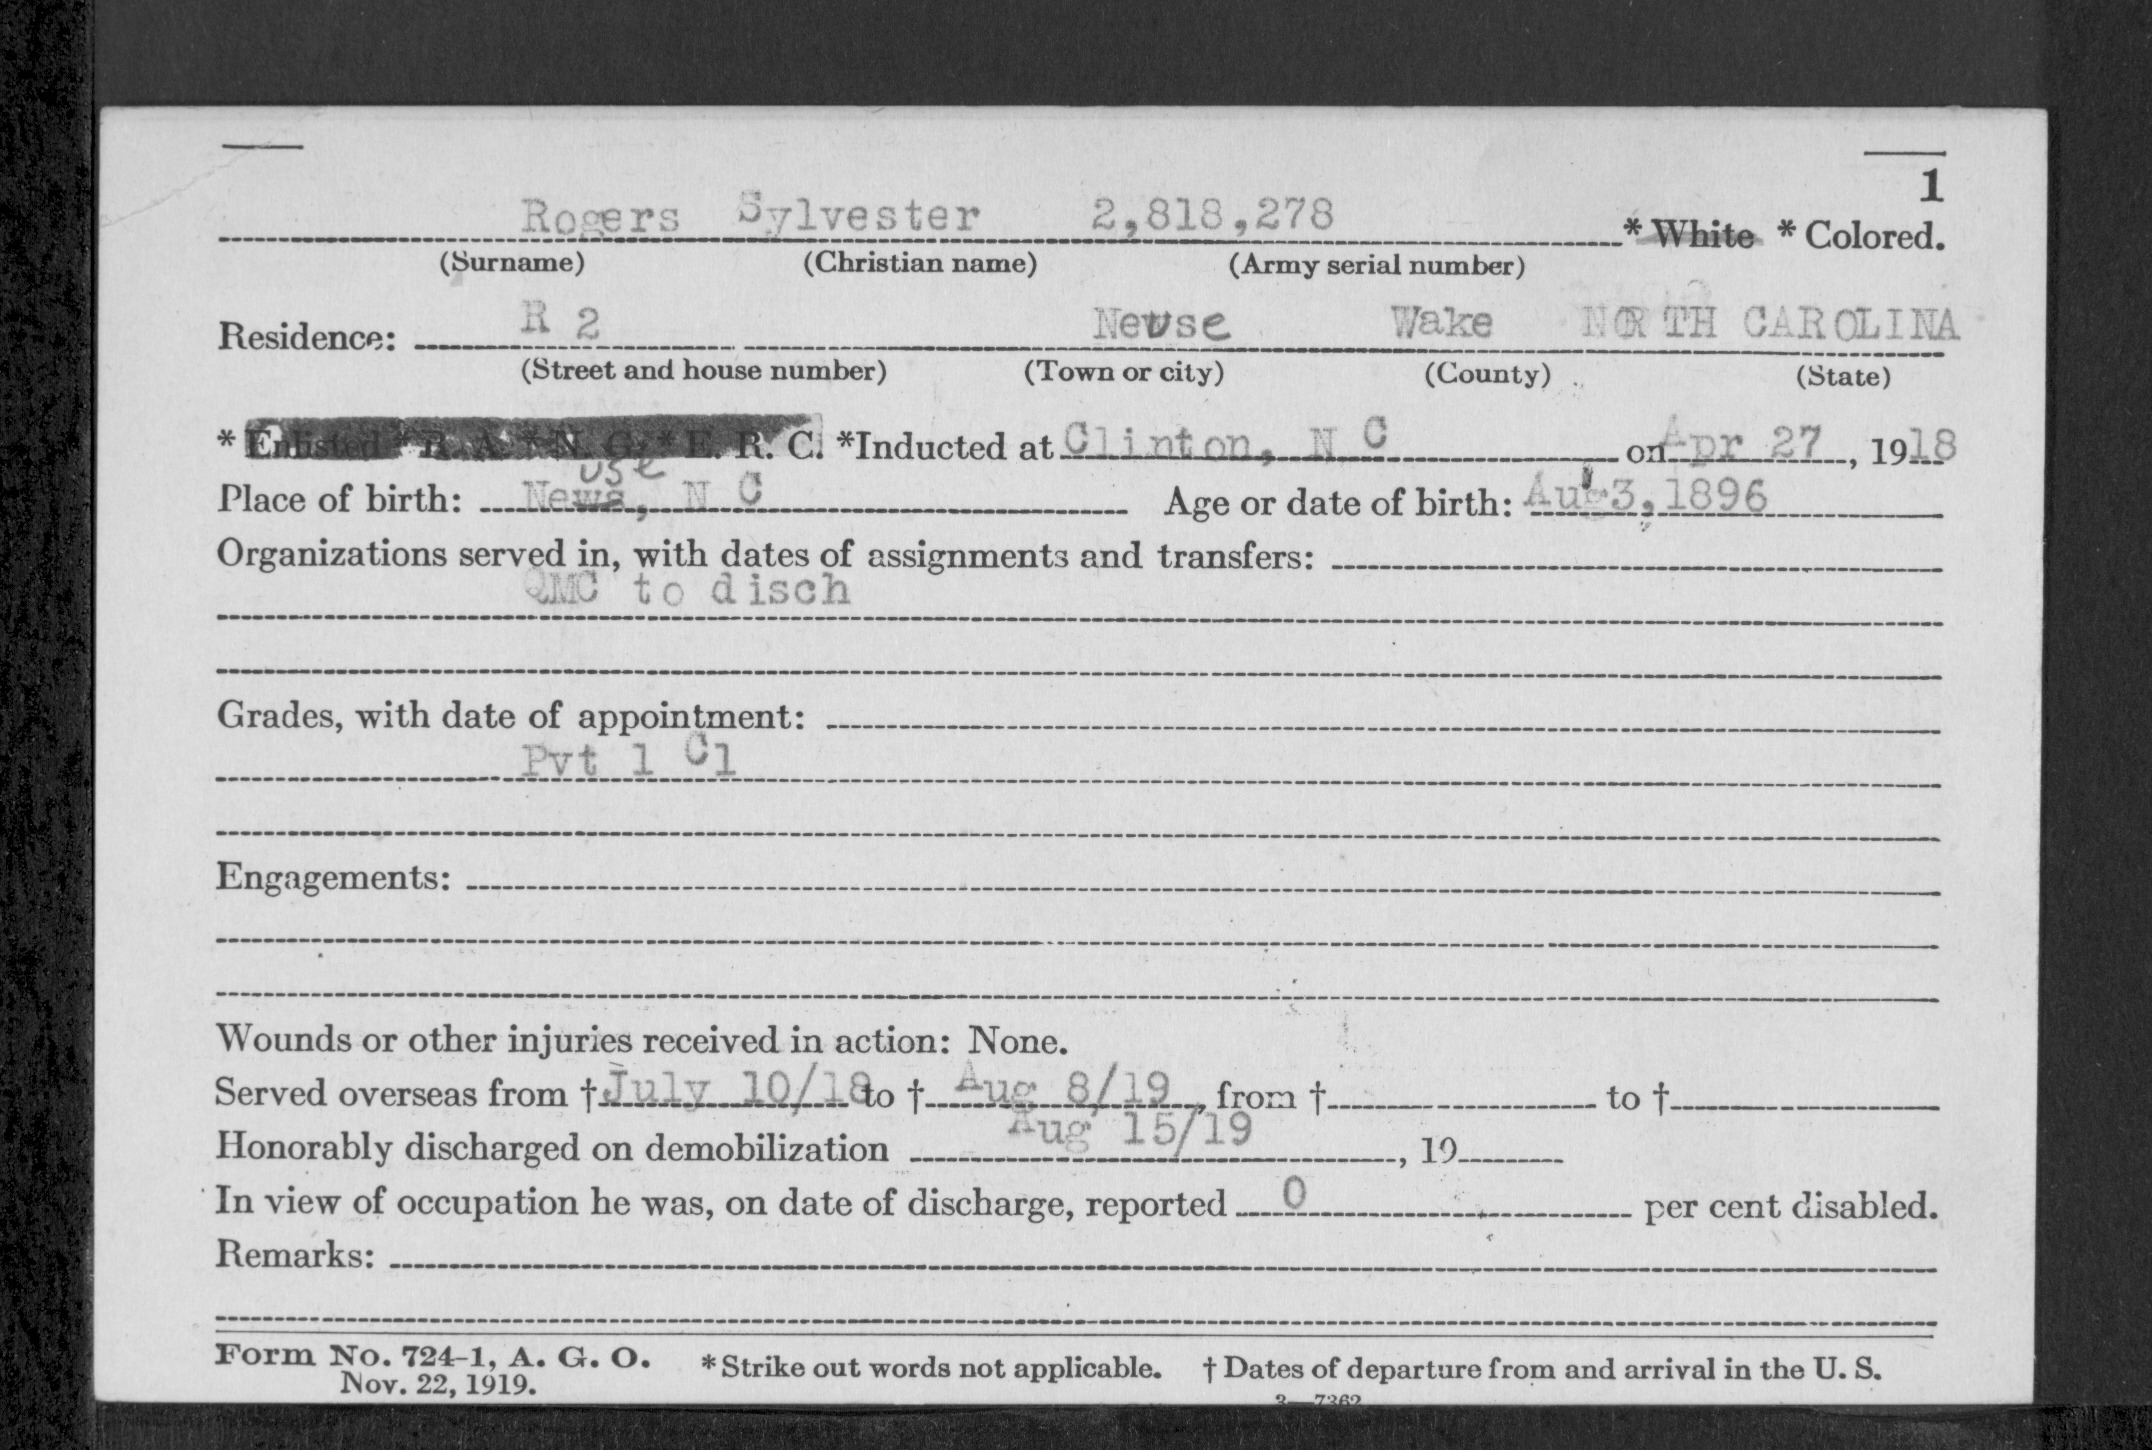 1
Rogers Sylvester 2,818,278 * White * Colored.
(Surname) (Christian name) (Army serial number)
Residence: R 2 Neuse Wake NORTH CAROLINA
(Street and house number) (Town or city) (County) (State)
* Enlisted * R. A. * N. G. * E. R. C. *Inducted at Clinton, N C on Apr 27, 1918
use
Place of birth: News, N C Age or date of birth: Aug 3, 1896
Organizations served in, with dates of assignments and transfers:
QMC to disch
Grades, with date of appointment:
Pvt 1 Cl
Engagements:
Wounds or other injuries received in action: None.
Served overseas from † July 10/18 to † Aug 8/19, from † to †
Honorably discharged on demobilization Aug 15/19, 19
In view of occupation he was, on date of discharge, reported 0 per cent disabled.
Remarks:
Form No. 724-1, A. G. O. * Strike out words not applicable. † Dates of departure from and arrival in the U. S.
Nov. 22, 1919.
3—7362